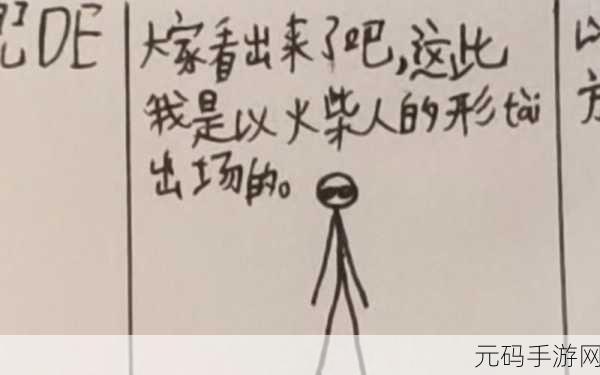 DE
大家看出来了吧,这此
我是以火柴人的形tài
出场的。
元码手游网